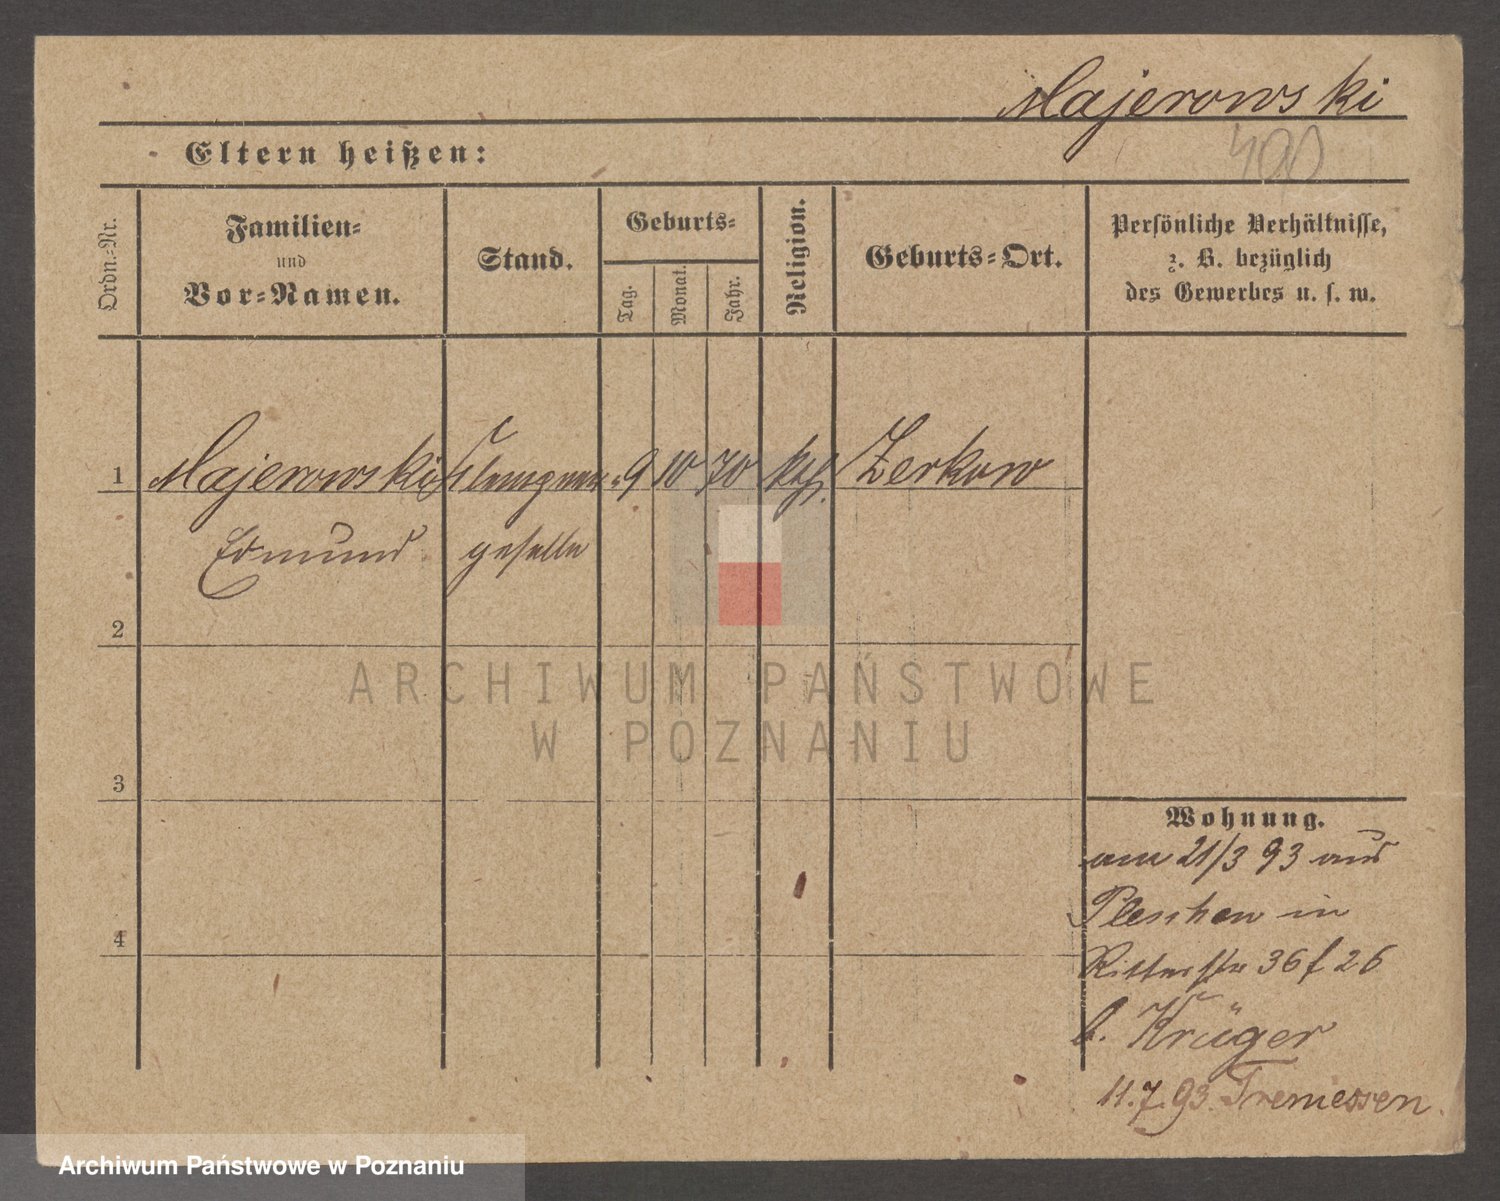 Majerowski
400
Eltern heißen:
Ordn.-Nr.
Familien-
und
Vor-Namen.
Stand.
Geburts-
Tag.
Monat.
Jahr.
Religion.
Geburts-Ort.
Persönliche Verhältnisse,
z. B. bezüglich
des Gewerbes u. s. w.
1 Majerowski Klempner- 9 10 70 kth. Zerkow
Edmund geselle
2
3
4
Wohnung.
am 21/3 93 aus
Pleschen in
Ritterstr 36 f 26
b. Krüger
11.7.93. Tremessen.
ARCHIWUM PAŃSTWOWE
W POZNANIU
Archiwum Państwowe w Poznaniu